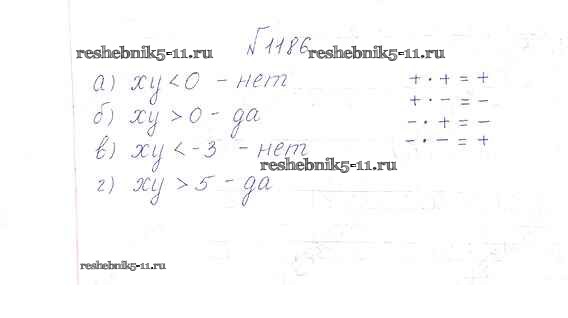 √1186
reshebnik5-11.ru
reshebnik5-11.ru
а) xy < 0 - нет
+ · + = +
б) xy > 0 - да
+ · - = -
- · + = -
в) xy < -3 - нет
- · - = +
reshebnik5-11.ru
г) xy > 5 - да
reshebnik5-11.ru